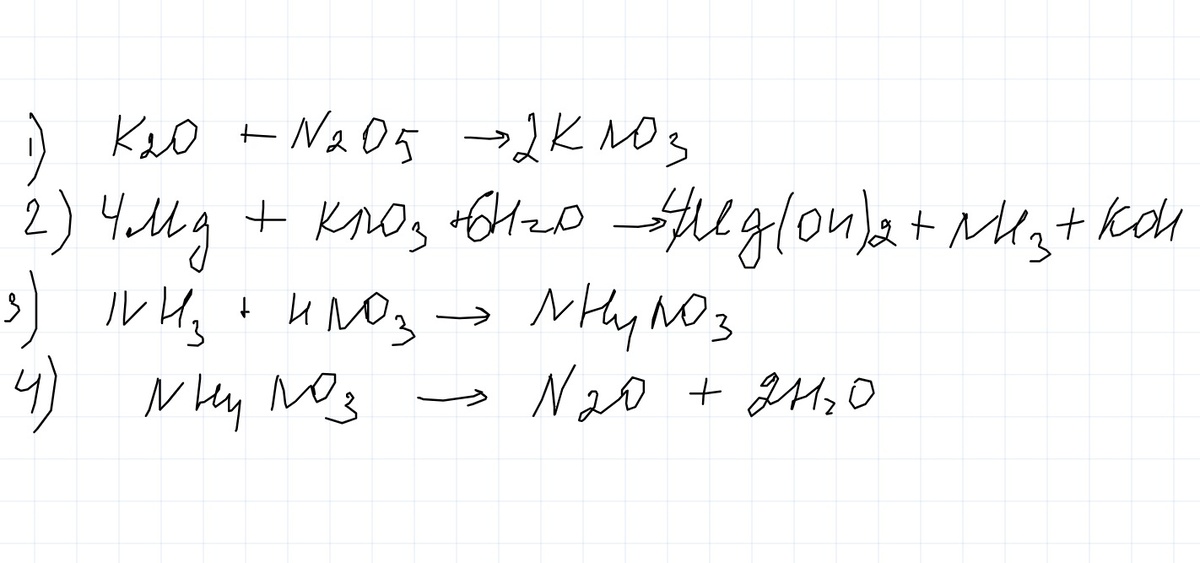 1) K2O + N2O5 → 2KNO3
2) 4Mg + KNO3 + 6H2O → 4Mg(OH)2 + NH3 + KOH
3) NH3 + HNO3 → NH4NO3
4) NH4NO3 → N2O + 2H2O